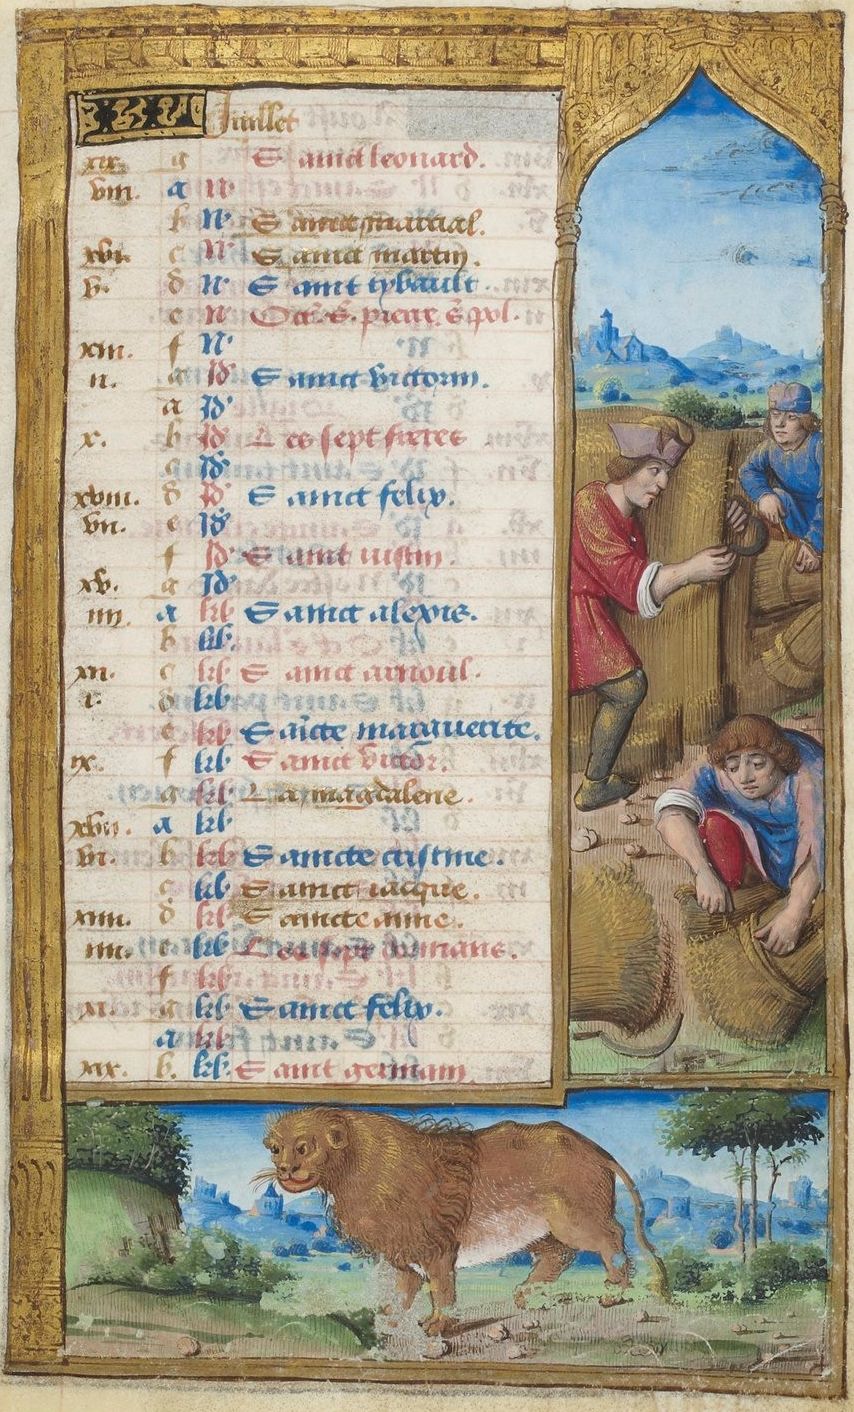 Juillet
xix. g Sainct leonard.
viii. a N
b N Sainct marcial.
xvi. c N Sainct martin.
v. d N Sainct tybault.
e N Oct. S. pierre S. pol.
xiii. f N
ii. g Id Sainct victorin.
a Id
x. b Id Les sept freres
c Id
xviii. d Id Sainct felix.
vii. e Id
f Id Sainct iustin
xv. g Id
iiii. a kl Sainct alexis.
b kl
xii. c kl Sainct arnoul.
i. d kl
e kl Saincte marguerite.
ix. f kl Sainct victor.
g kl La magdalene.
xvii. a kl
vi. b kl Saincte cristine.
c kl Sainct iacque.
xiiii. d kl Saincte anne.
iii. e kl Les sept dormans.
f kl
xi. g kl Sainct felix.
a kl
xix. b. kl Sainct germain.